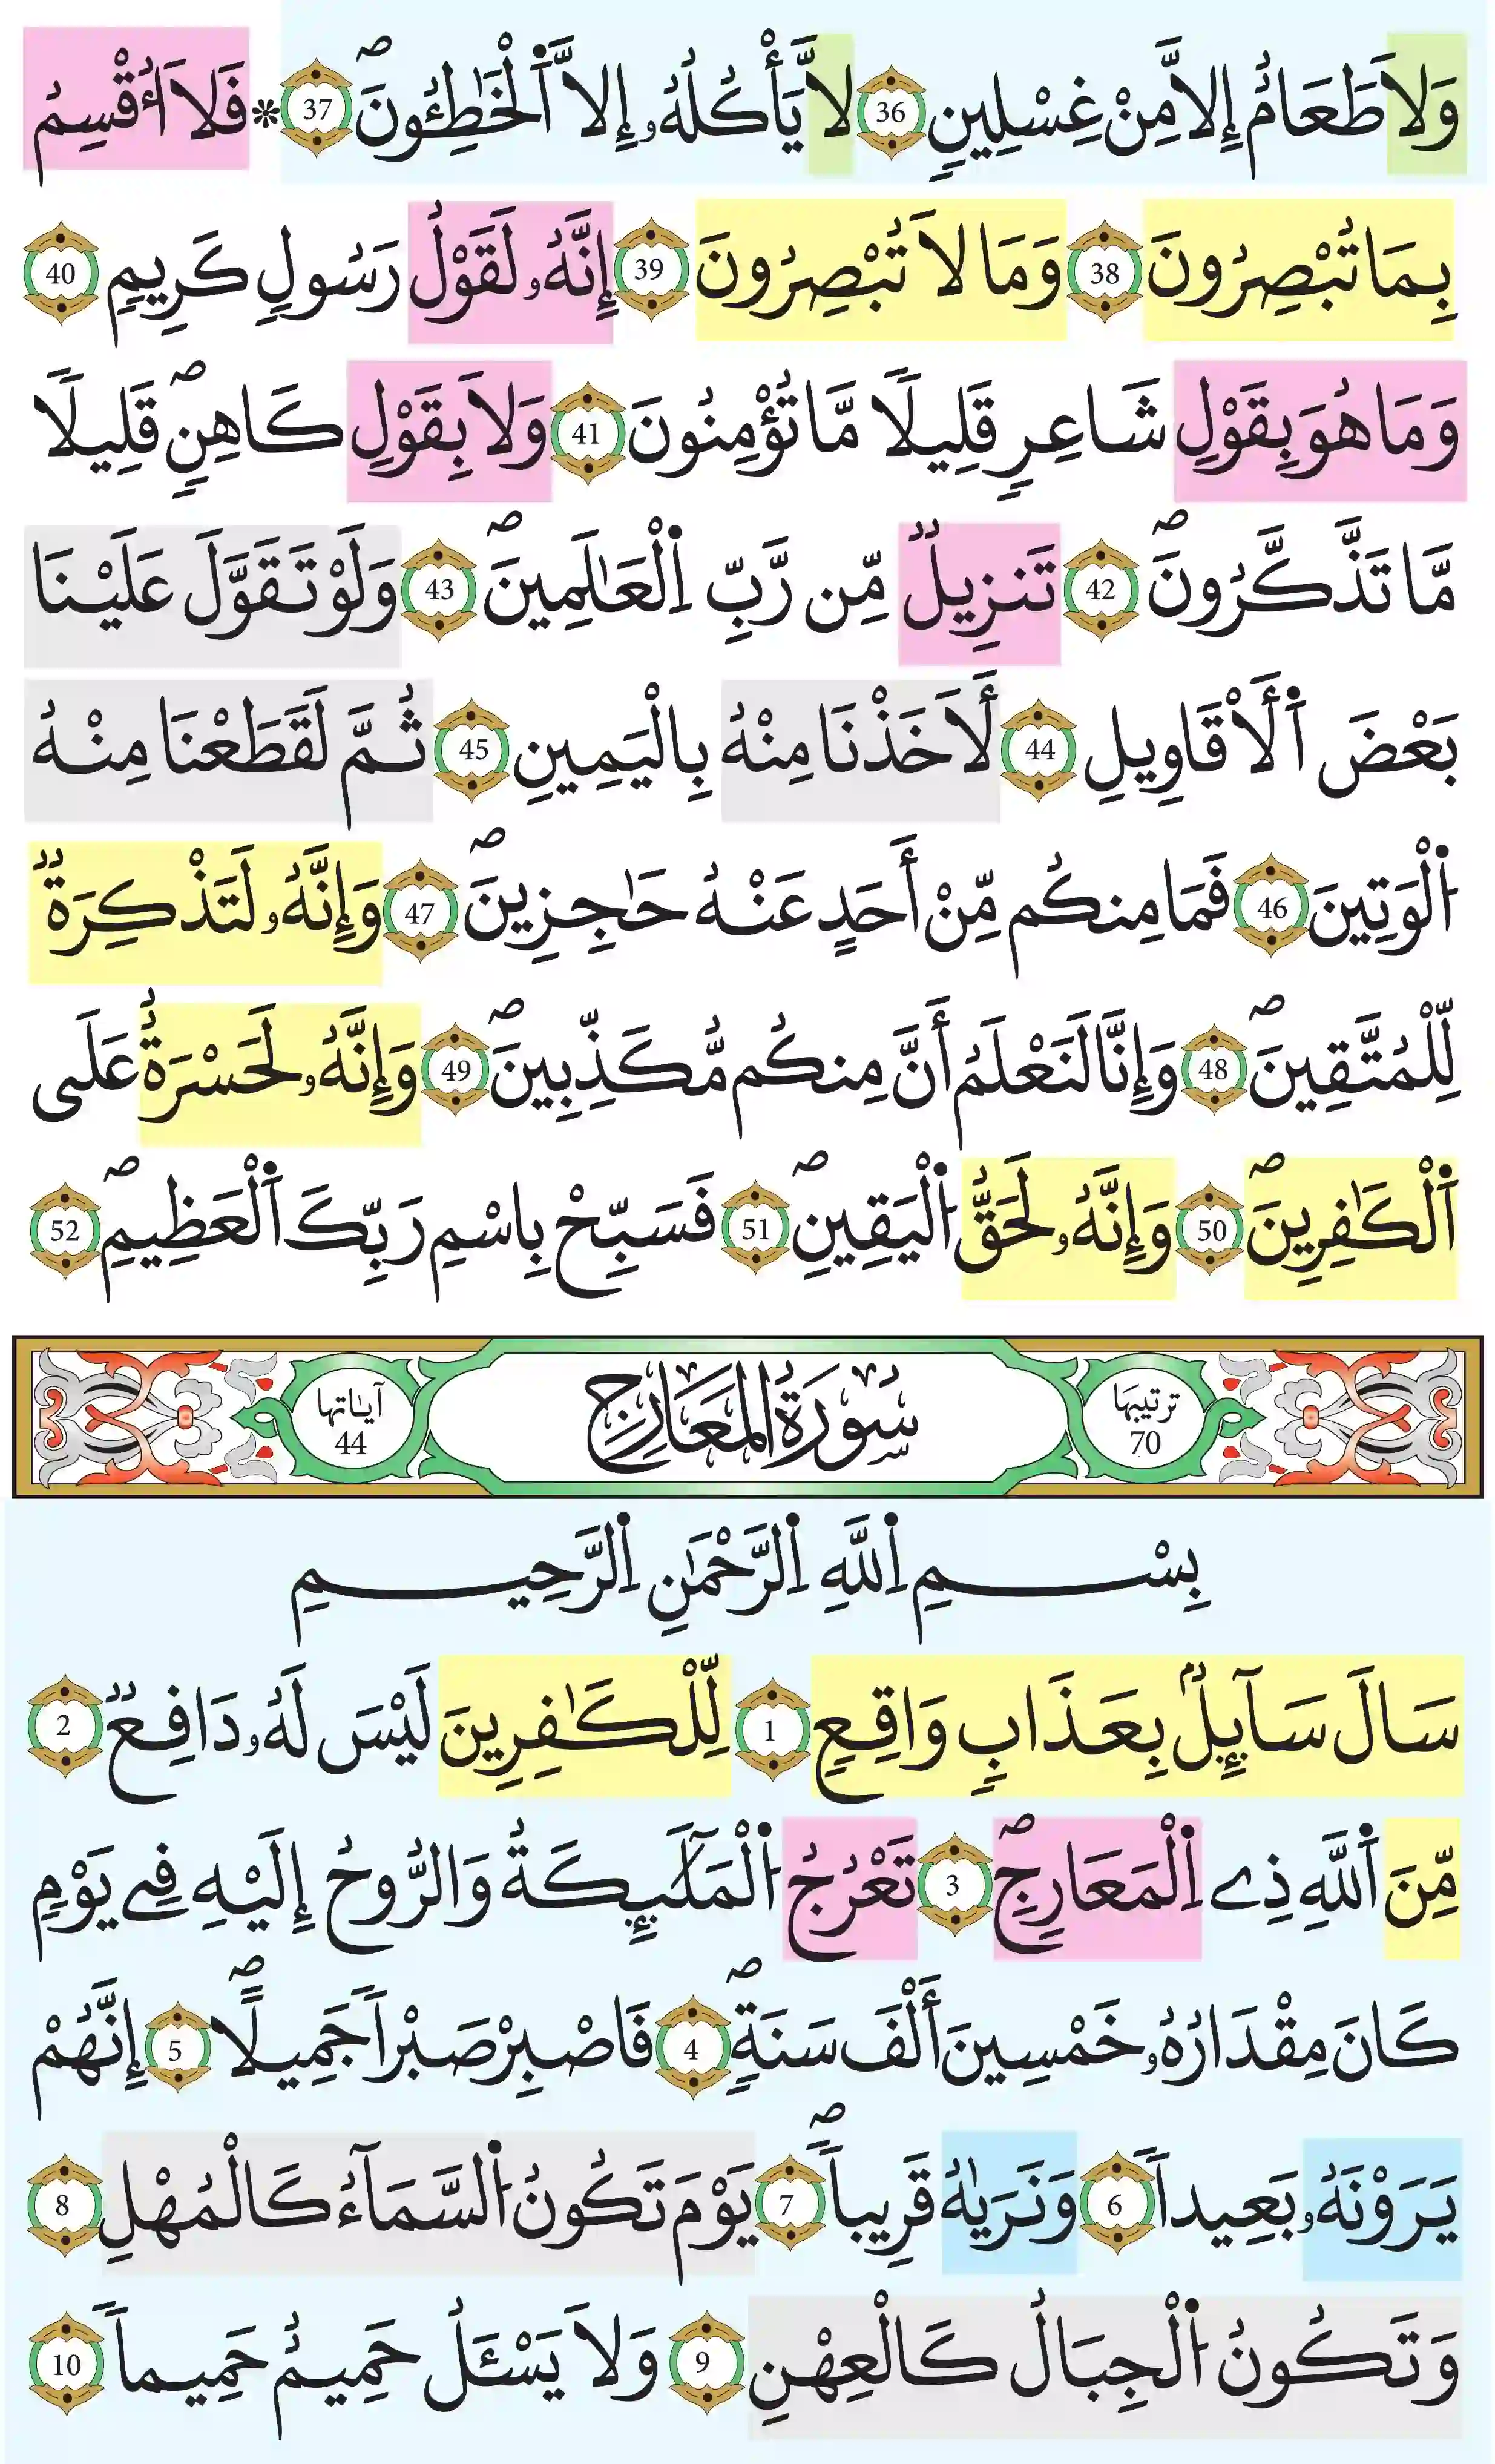 وَلَا طَعَامٌ إِلَّا مِنْ غِسْلِينٍ 36 لَّا يَأْكُلُهُۥ إِلَّا اَ۬لْخَٰطِـُٔونَۖ 37 * فَلَا أُقْسِمُ
بِمَا تُبْصِرُونَ 38 وَمَا لَا تُبْصِرُونَ 39 إِنَّهُۥ لَقَوْلُ رَسُولٍ كَرِيمٍ 40
وَمَا هُوَ بِقَوْلِ شَاعِرٍ قَلِيلًا مَّا تُؤْمِنُونَ 41 وَلَا بِقَوْلِ كَاهِنٍۖ قَلِيلًا
مَّا تَذَّكَّرُونَۖ 42 تَنزِيلٌ مِّن رَّبِّ اِ۬لْعَٰلَمِينَۖ 43 وَلَوْ تَقَوَّلَ عَلَيْنَا
بَعْضَ اَ۬لْأَقَاوِيلِ 44 لَأَخَذْنَا مِنْهُ بِالْيَمِينِ 45 ثُمَّ لَقَطَعْنَا مِنْهُ
اُ۬لْوَتِينَ 46 فَمَا مِنكُم مِّنْ أَحَدٍ عَنْهُ حَٰجِزِينَۖ 47 وَإِنَّهُۥ لَتَذْكِرَةٌ
لِّلْمُتَّقِينَۖ 48 وَإِنَّا لَنَعْلَمُ أَنَّ مِنكُم مُّكَذِّبِينَۖ 49 وَإِنَّهُۥ لَحَسْرَةٌ عَلَى
اَ۬لْكَٰفِرِينَۖ 50 وَإِنَّهُۥ لَحَقُّ اُ۬لْيَقِينِۖ 51 فَسَبِّحْ بِاسْمِ رَبِّكَ اَ۬لْعَظِيمِۖ 52
ترتيبها 70 سُورَةُ المَعَارِجِ آياتها 44
بِسْمِ اِ۬للَّهِ اِ۬لرَّحْمَٰنِ اِ۬لرَّحِيمِ
سَالَ سَآئِلٌ بِعَذَابٍ وَاقِعٍ 1 لِّلْكَٰفِرِينَ لَيْسَ لَهُۥ دَافِعٌ 2
مِّنَ اَ۬للَّهِ ذِے اِ۬لْمَعَارِجِۖ 3 تَعْرُجُ اُ۬لْمَلَٰٓئِكَةُ وَالرُّوحُ إِلَيْهِ فِے يَوْمٍ
كَانَ مِقْدَارُهُۥ خَمْسِينَ أَلْفَ سَنَةٍۖ 4 فَاصْبِرْ صَبْراً جَمِيلًاۖ 5 إِنَّهُمْ
يَرَوْنَهُۥ بَعِيداً 6 وَنَرَيٰهُ قَرِيباًۖ 7 يَوْمَ تَكُونُ اُ۬لسَّمَآءُ كَالْمُهْلِ 8
وَتَكُونُ اُ۬لْجِبَالُ كَالْعِهْنِ 9 وَلَا يَسْـَٔلُ حَمِيمٌ حَمِيماً 10